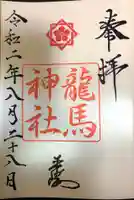 奉拝
龍馬
神社
令和二年八月二十八月